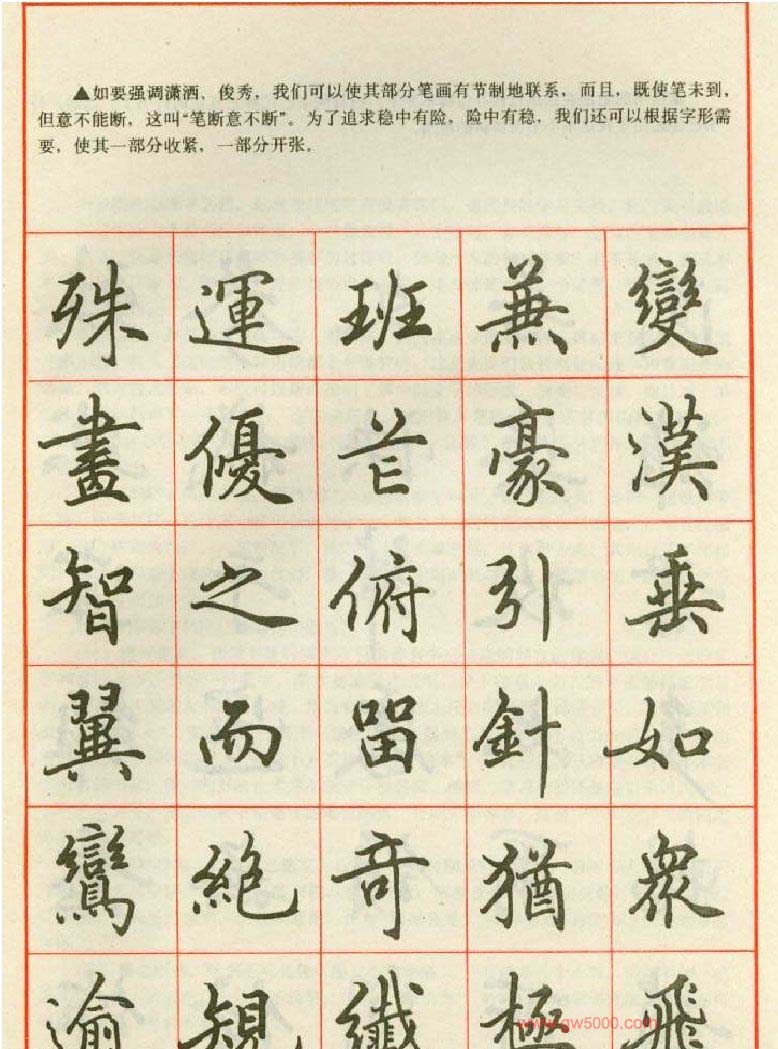 ▲如要强调潇洒、俊秀，我们可以使其部分笔画有节制地联系，而且，既使笔未到，
但意不能断，这叫“笔断意不断”。为了追求稳中有险，险中有稳，我们还可以根据字形需
要，使其一部分收紧，一部分开张。
變漢垂如衆飛
兼豪引針猶極
班芒俯留奇纖
運優之而絶規
殊畫智翼鸞逾
www.gw5000.com